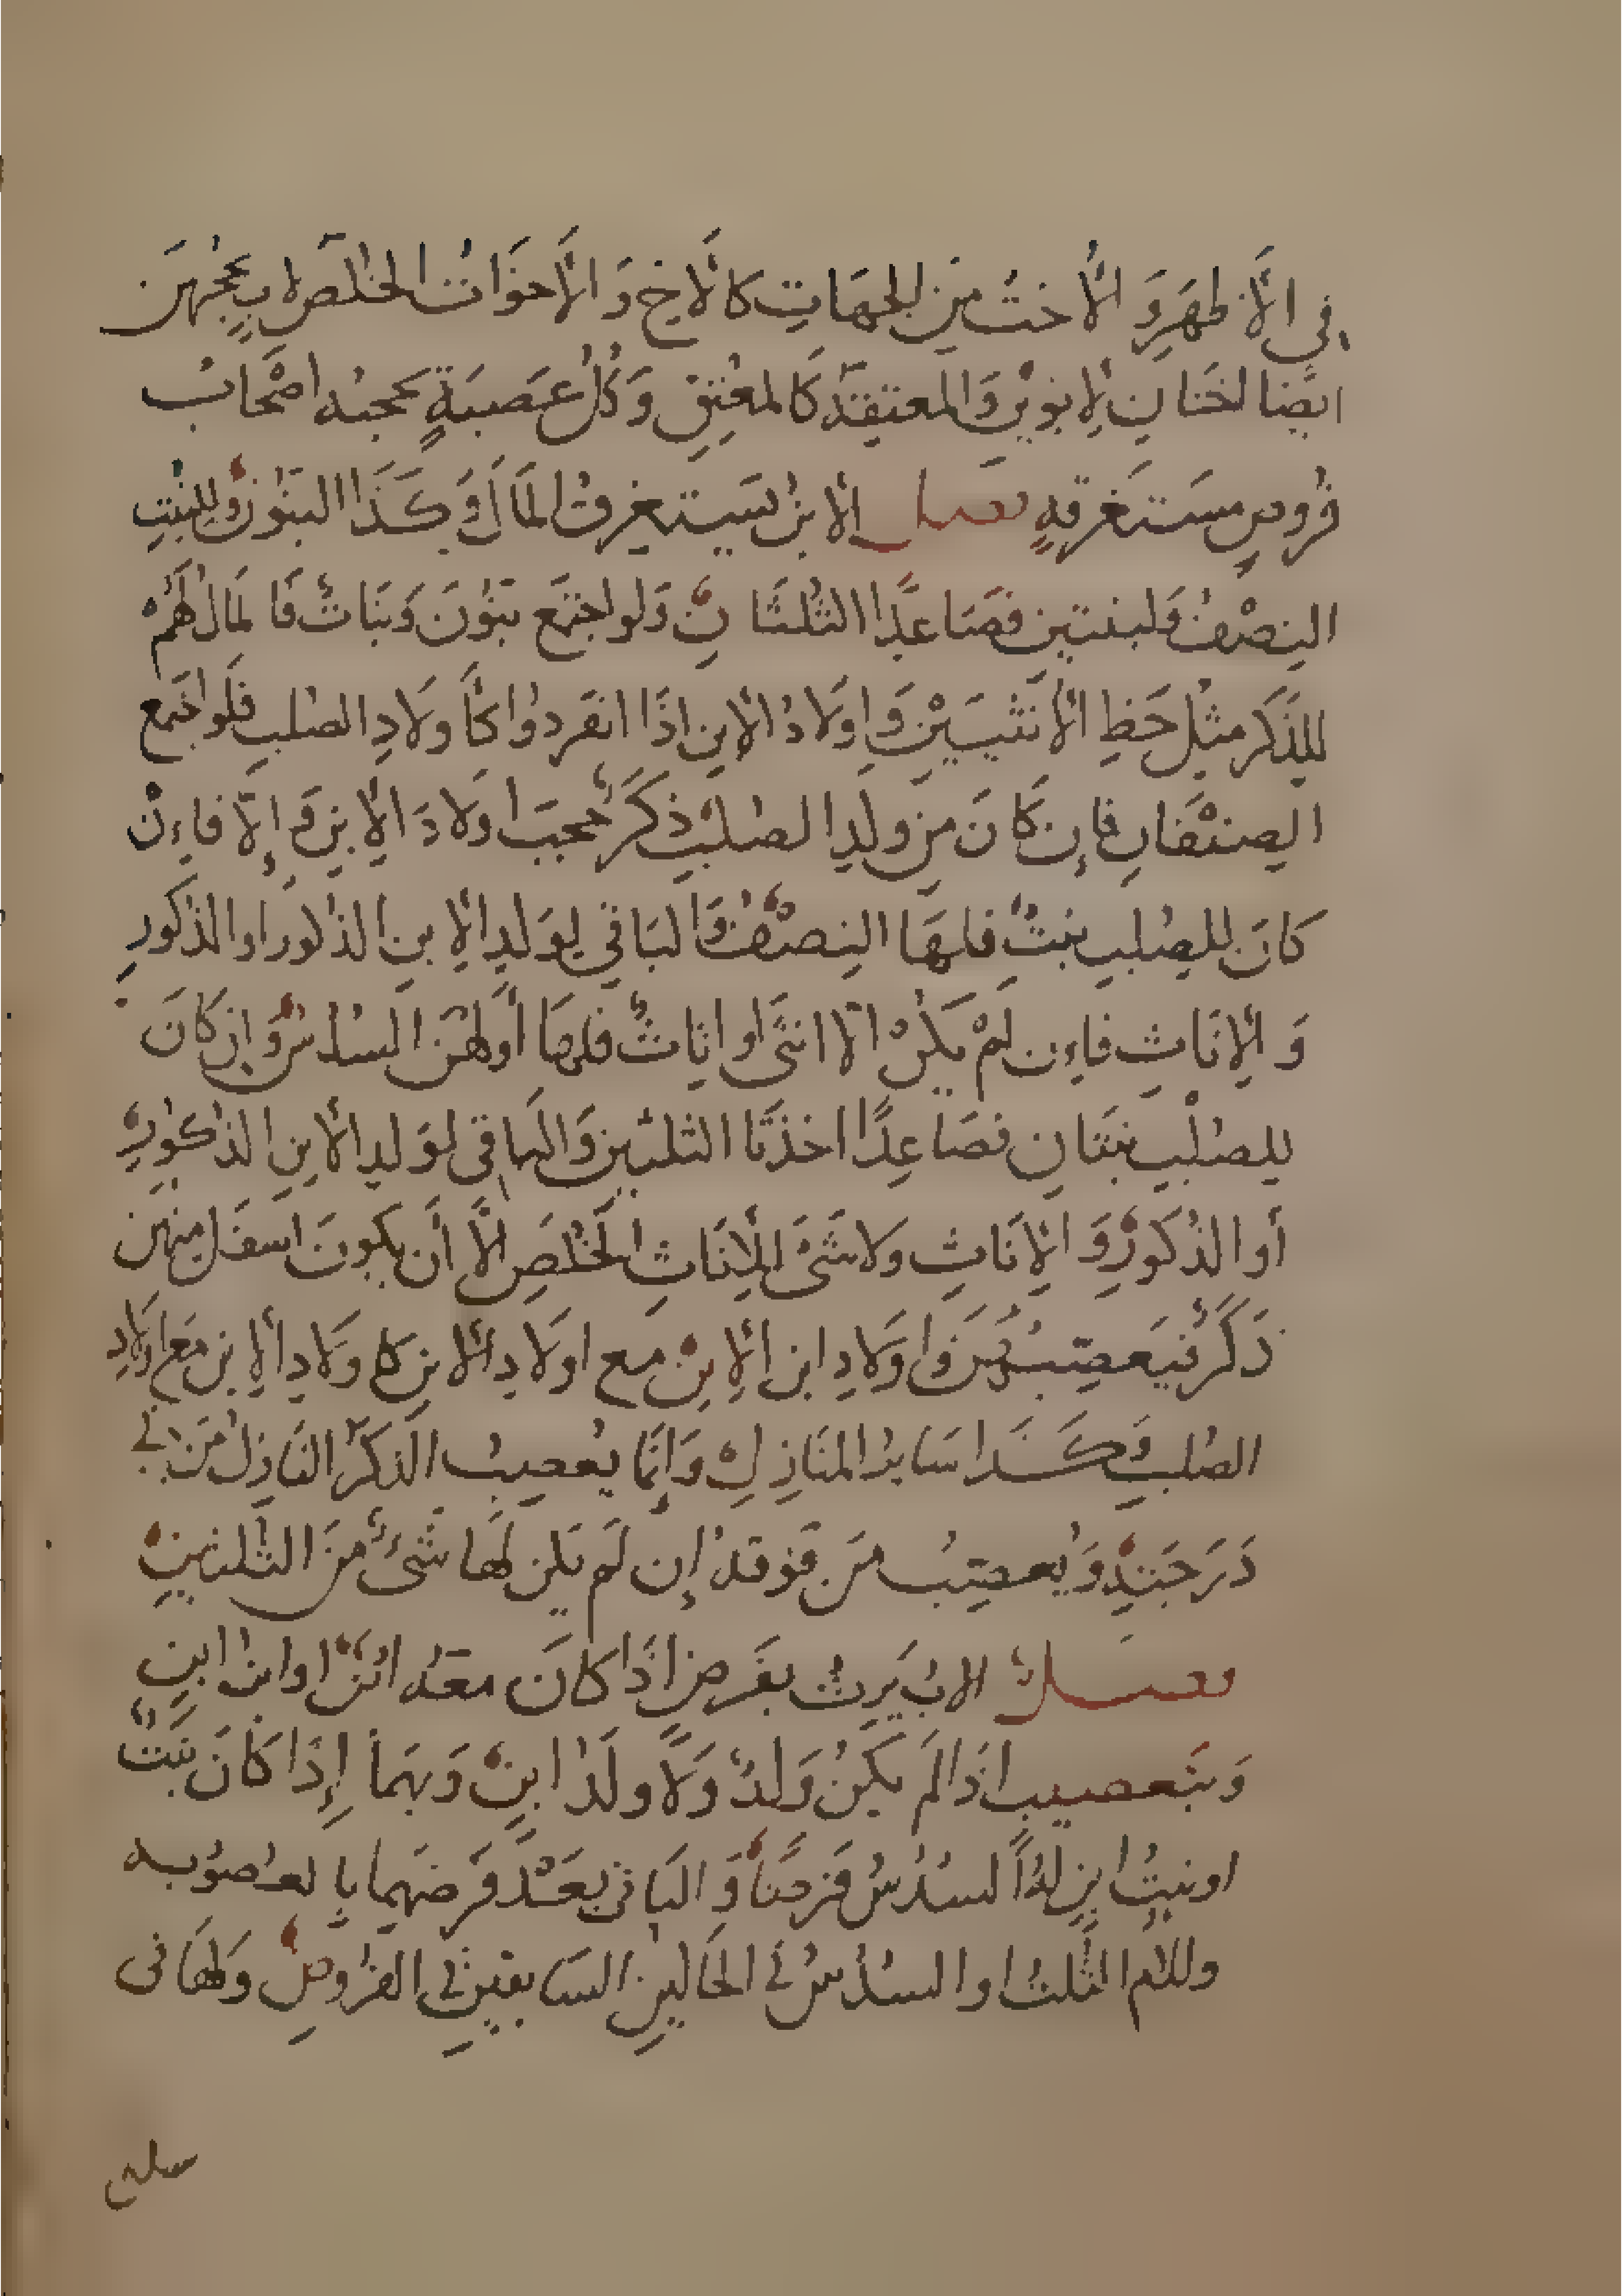 في الأظهر والأخت من الجهات كالأخ والأخوات الخلص لاب يحجبهن
ايضا اختان لابوين والمعتقة كالمعتق وكل عصبة يحجبه اصحاب
فروض مستغرقة فصل الابن يستغرق المال وكذا البنون وللبنت
النصف ولبنتين فصاعدا الثلثان ولو اجتمع بنون وبنات فالمال لهم
للذكر مثل حظ الأنثيين واولاد الابن اذا انفردوا كاولاد الصلب فلو اجتمع
الصنفان فإن كان من ولد الصلب ذكر حجب اولاد الابن وإلا فإن
كان للصلب بنت فلها النصف والباقي لولد الابن الذكور او الذكور
والإناث فإن لم يكن الا انثى او اناث فلها أو لهن السدس وإن كان
للصلب بنتان فصاعدا اخذتا الثلثين والباقي لولد الابن الذكور
أو الذكور والإناث ولا شيء للإناث الخلص إلا أن يكون اسفل منهن
ذكر فيعصبهن واولاد ابن الابن مع اولاد الابن كاولاد الابن مع اولاد
الصلب وكذا سائر المنازل وإنما يعصب الذكر النازل من في
درجته ويعصب من فوقه إن لم يكن لها شيء من الثلثين
فصل الاب يرث بفرض اذا كان معه ابن او ابن ابن
وبتعصيب اذا لم يكن ولد ولا ولد ابن وبهما إذا كان بنت
او بنت ابن له السدس فرضا والباقي بعد فرضهما بالعصوبه
وللام الثلث او السدس في الحالين السابقين في الفروض ولها في